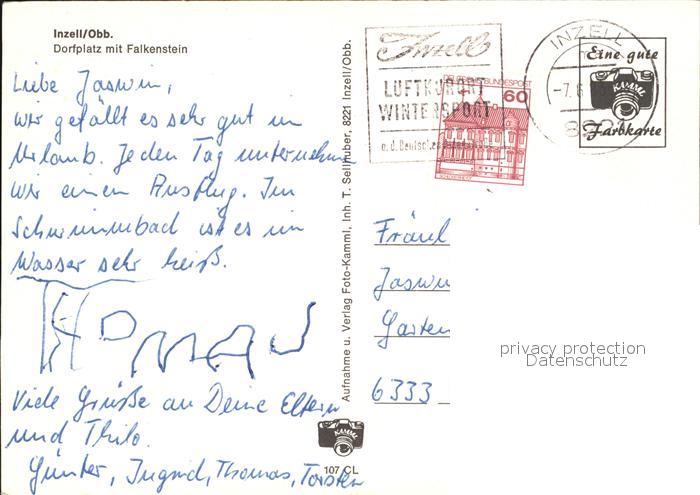 Inzell/Obb.
Dorfplatz mit Falkenstein
Liebe Jaswin,
wir gefällt es sehr gut im
Urlaub. Jeden Tag unternehmen
wir einen Ausflug. Im
Schwimmbad ist es im
Wasser sehr heiß.
THOMAS
Viele Grüße an Deine Eltern
und Thilo.
Günter, Ingrid, Thomas, Torsten
Aufnahme u. Verlag Foto-Kammi, Inh. T. Sellhuber, 8221 Inzell/Obb.
KAMML
107 CL
Inzell
LUFTKURORT
WINTERSPORT
a. d. Deutschen
DEUTSCHE BUNDESPOST
60
INZELL
-7.6
8221
Eine gute
KAMML
Farbkarte
Fräul
Jaswin
Garten
6333
privacy protection
Datenschutz